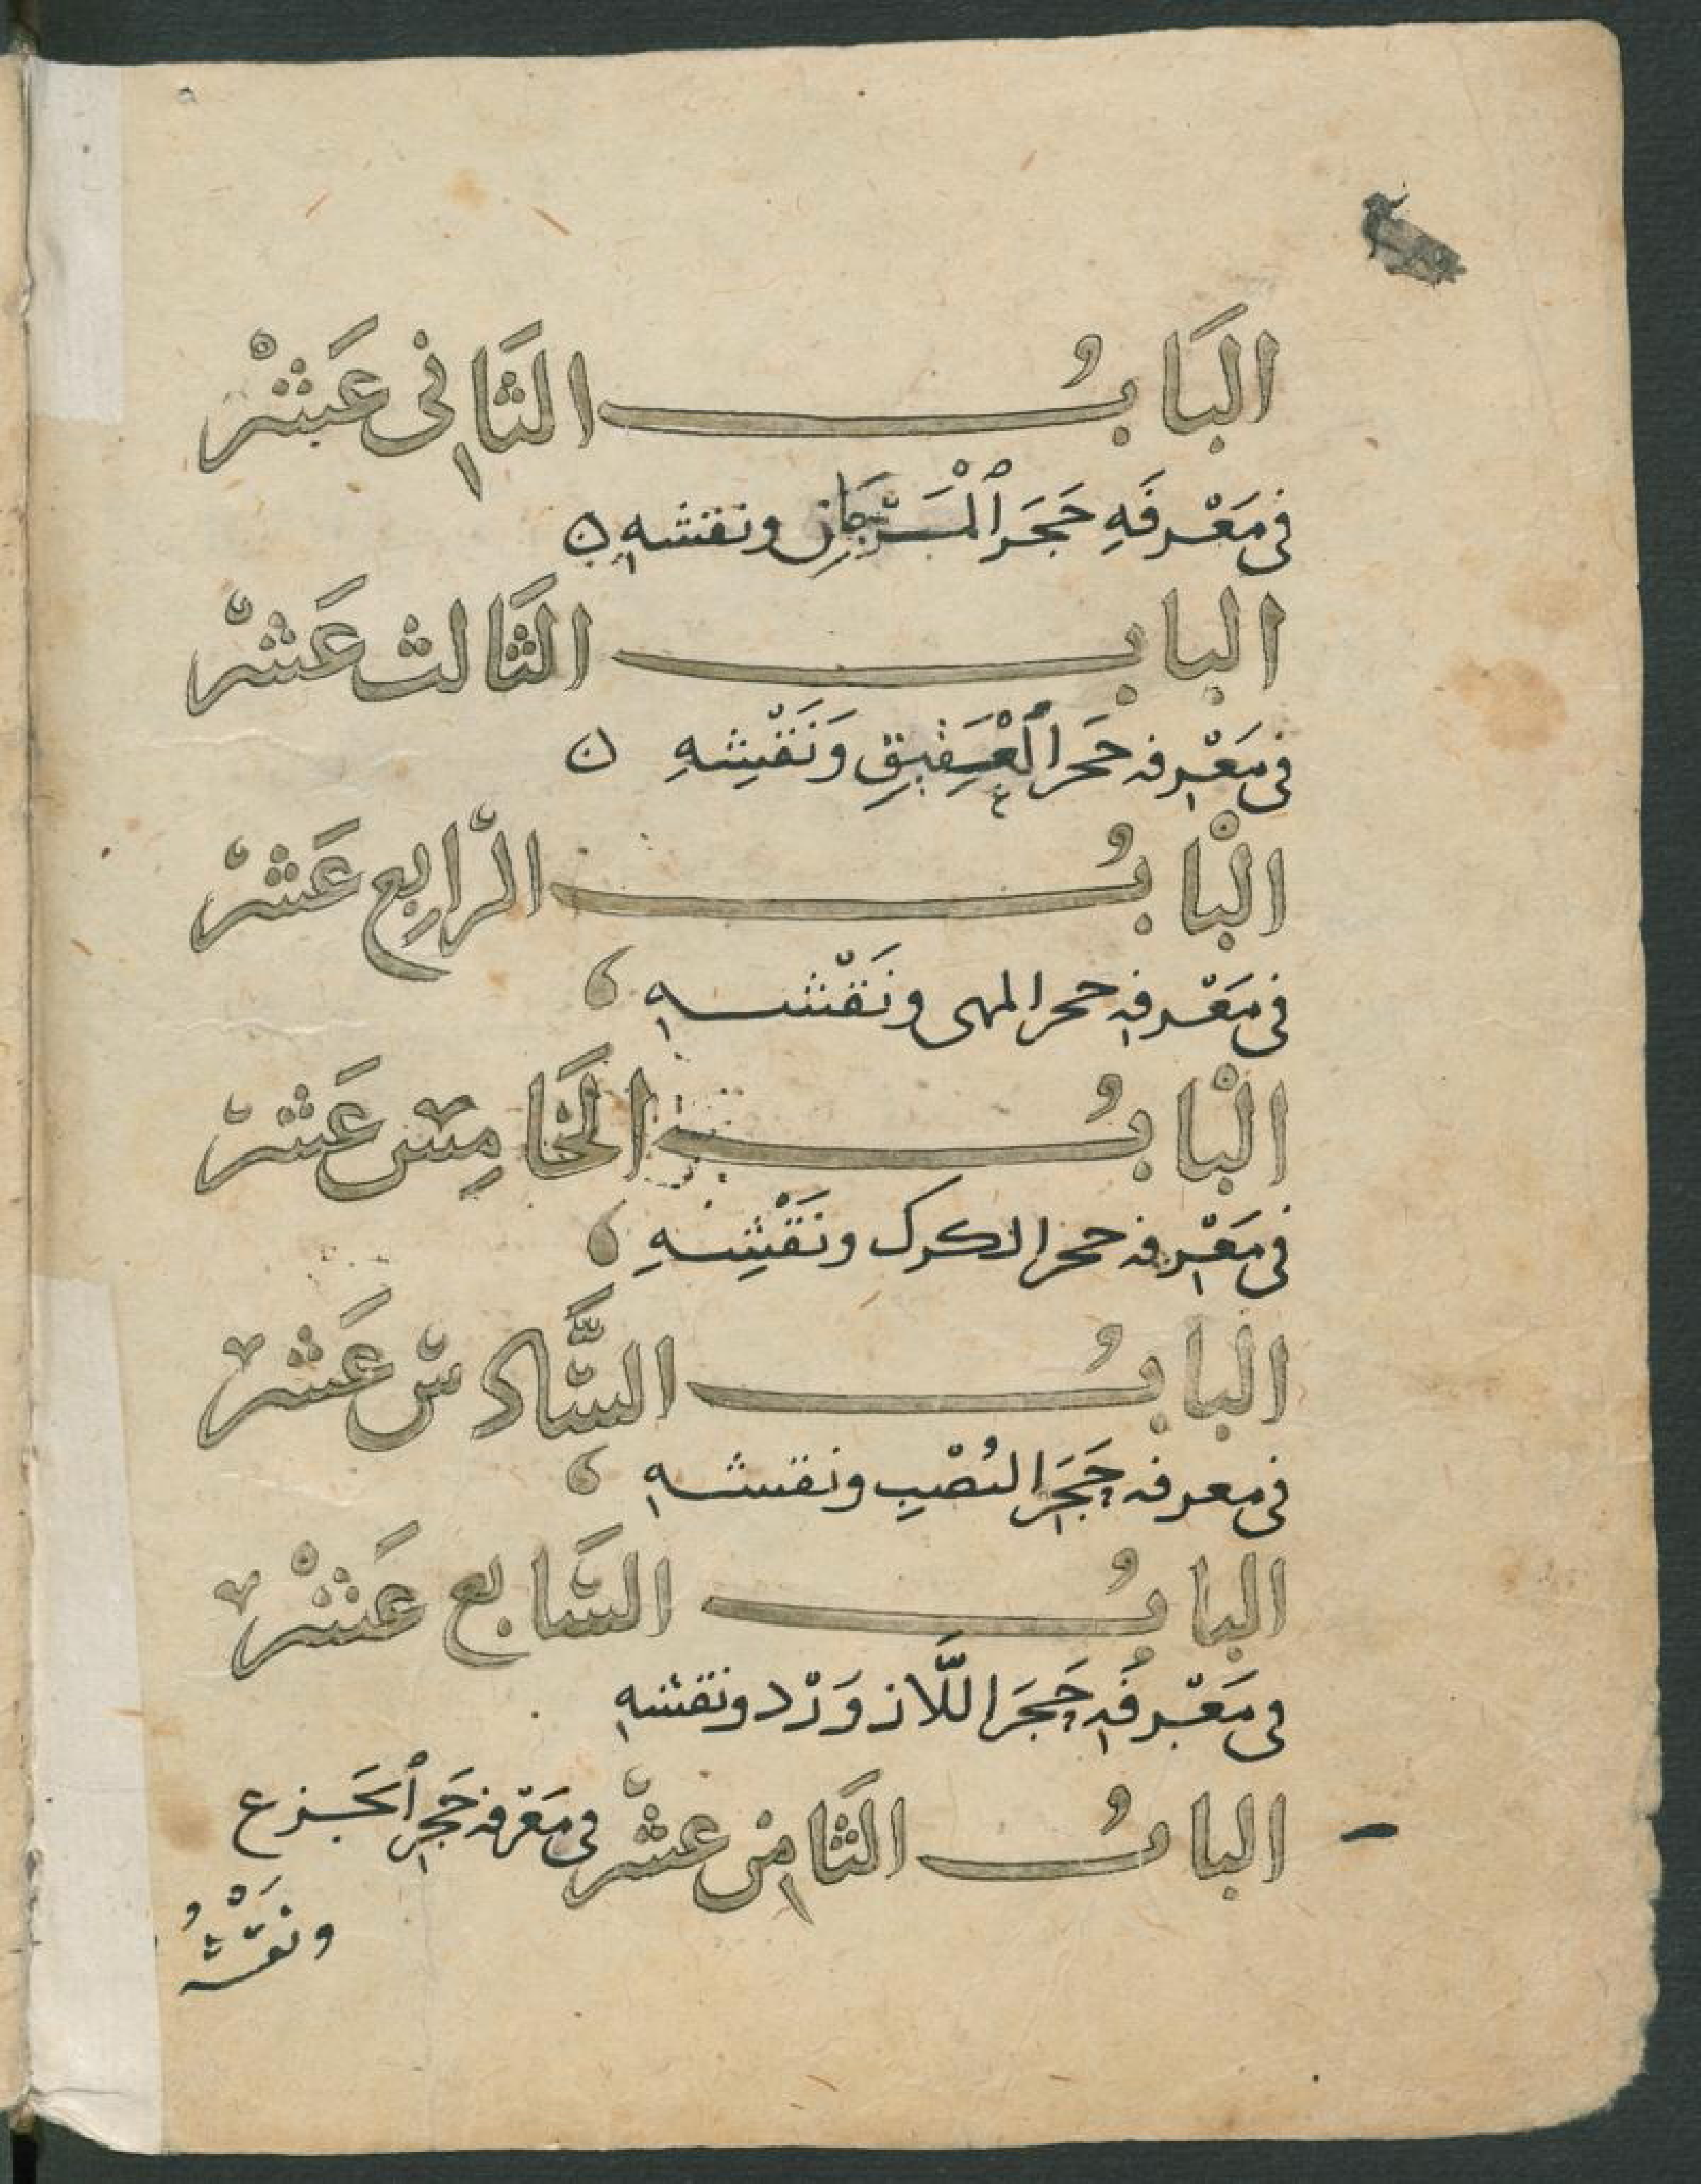 البَابُ الثَّانِى عَشْر
فى مَعْرفَهِ حَجَر ٱلْمَرْجَانِ ونقشهِ
الباب الثَّالث عَشْر
فى مَعْرفه حَجَر ٱلْعَقيقِ وَنَقْشِهِ
الْبابُ الرْابع عَشْر
فى مَعْرفه حجر المهى ونَقْشه
الْبابُ الخَامِسْ عَشْر
فى مَعْرفه حجر الكرك ونَقْشِهِ
البابُ السَّادسْ عَشْر
فى معرفه حَجَر النُصْبِ ونقشه
البابُ السَّابع عَشْر
فى مَعْرفَه حَجَر اللَّازوَرْد ونقشه
البابُ الثَّامنْ عشْر فى مَعْرفه حَجَر ٱلجَزع
ونَقْشُه